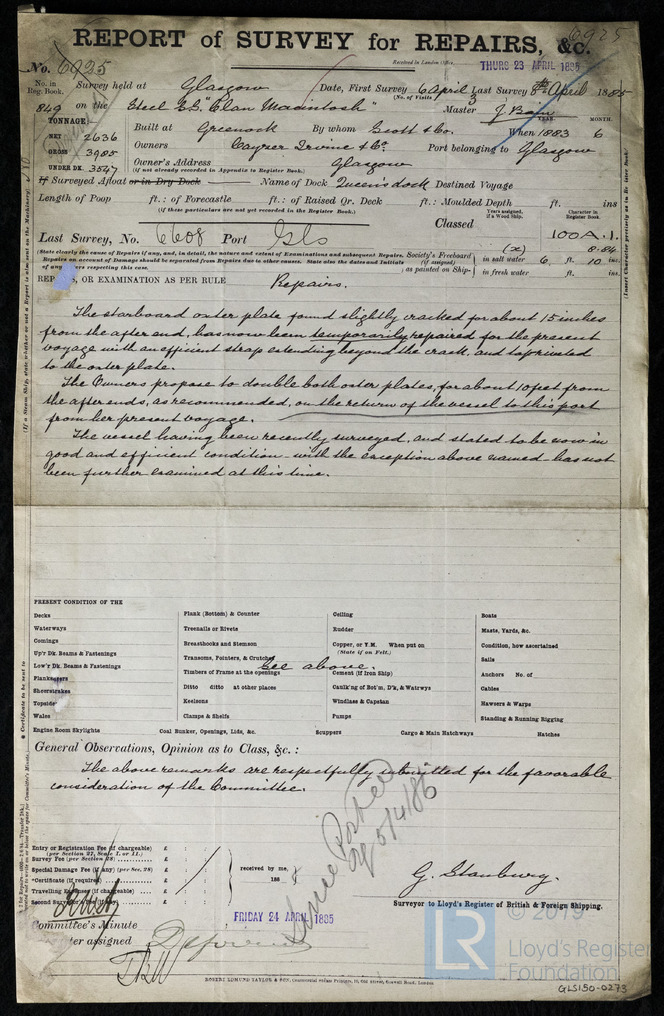 6925
REPORT of SURVEY for REPAIRS, &c.
No. 6925
Received in London Office,
THURS 23 APRIL 1885
No. in Reg. Book.
Survey held at Glasgow Date, First Survey 6 April Last Survey 8th April 1885
(No. of Visits 3
849 on the Steel S.S. "Clan Macintosh" Master J Bain
TONNAGE:
NET 2636
GROSS 3985
UNDER DK. 3547
YEAR. MONTH.
Built at Greenock By whom Scott & Co. When 1883 6
Owners Cayzer Irvine & Co. Port belonging to Glasgow
Owner's Address Glasgow
(if not already recorded in Appendix to Register Book.)
If Surveyed Afloat or in Dry Dock Name of Dock Queen's dock Destined Voyage
Length of Poop ft.: of Forecastle ft.: of Raised Qr. Deck ft.: Moulded Depth ft. ins
(if these particulars are not yet recorded in the Register Book.)
Years assigned, if a Wood Ship. Character in Register Book.
Classed 100A.1.
8.84
Last Survey, No. 6608 Port Gls
(State clearly the cause of Repairs if any, and, in detail, the nature and extent of Examinations and subsequent Repairs.
Repairs on account of Damage should be separated from Repairs due to other causes. State also the dates and initials
of any letters respecting this case.
Society's Freeboard (if assigned) as painted on Ship-
(x)
in salt water 6 ft. 10 ins.
in fresh water ft. ins.
REPAIRS, OR EXAMINATION AS PER RULE Repairs.
The starboard outer plate found slightly cracked for about 15 inches
from the after end, has now been temporarily repaired for the present
voyage with an efficient strap extending beyond the crack, and tap riveted
to the outer plate.
The Owners propose to double both outer plates, for about 10 feet from
the after ends, as recommended, on the return of the vessel to this port
from her present voyage.
The vessel having been recently surveyed, and stated to be now in
good and efficient condition - with the exception above named - has not
been further examined at this time.
PRESENT CONDITION OF THE
Decks
Waterways
Comings
Up'r Dk. Beams & Fastenings
Low'r Dk. Beams & Fastenings
Planksheers
Sheerstrakes
Topsides
Wales
Engine Room Skylights
Plank (Bottom) & Counter
Treenails or Rivets
Breasthooks and Stemson
Transoms, Pointers, & Crutches
Timbers of Frame at the openings
Ditto ditto at other places
Keelsons
Clamps & Shelfs
Coal Bunker, Openings, Lids, &c.
See above.
Ceiling
Rudder
Copper, or Y.M. When put on
(State if on Felt.)
Cement (if Iron Ship)
Caulk'ng of Bot'm, D'k, & Watrwys
Windlass & Capstan
Pumps
Scuppers Cargo & Main Hatchways
Boats
Masts, Yards, &c.
Condition, how ascertained
Sails
Anchors No. of
Cables
Hawsers & Warps
Standing & Running Rigging
Hatches
General Observations, Opinion as to Class, &c. :
The above remarks are respectfully submitted for the favorable
consideration of the Committee.
Since Posted
5/4/86
Entry or Registration Fee (if chargeable) £ : :
(per Section 27, Scale I. or II.)
Survey Fee (per Section 28) £ : :
Special Damage Fee (if any) (per Sec. 28) £ : :
*Certificate (if required) £ : :
Travelling Expenses (if chargeable) £ : :
Second Surveyor's Fee (if any) £ : :
received by me,
188
G. Stanbury.
Surveyor to Lloyd's Register of British & Foreign Shipping.
Committee's Minute
FRIDAY 24 APRIL 1885
Character assigned Deferred
ROBERT EDMUND TAYLOR & SON, Commercial Steam Printers, 19, Old Street, Goswell Road, London
© 2019
LR
Lloyd's Register
Foundation
GLS150-0273